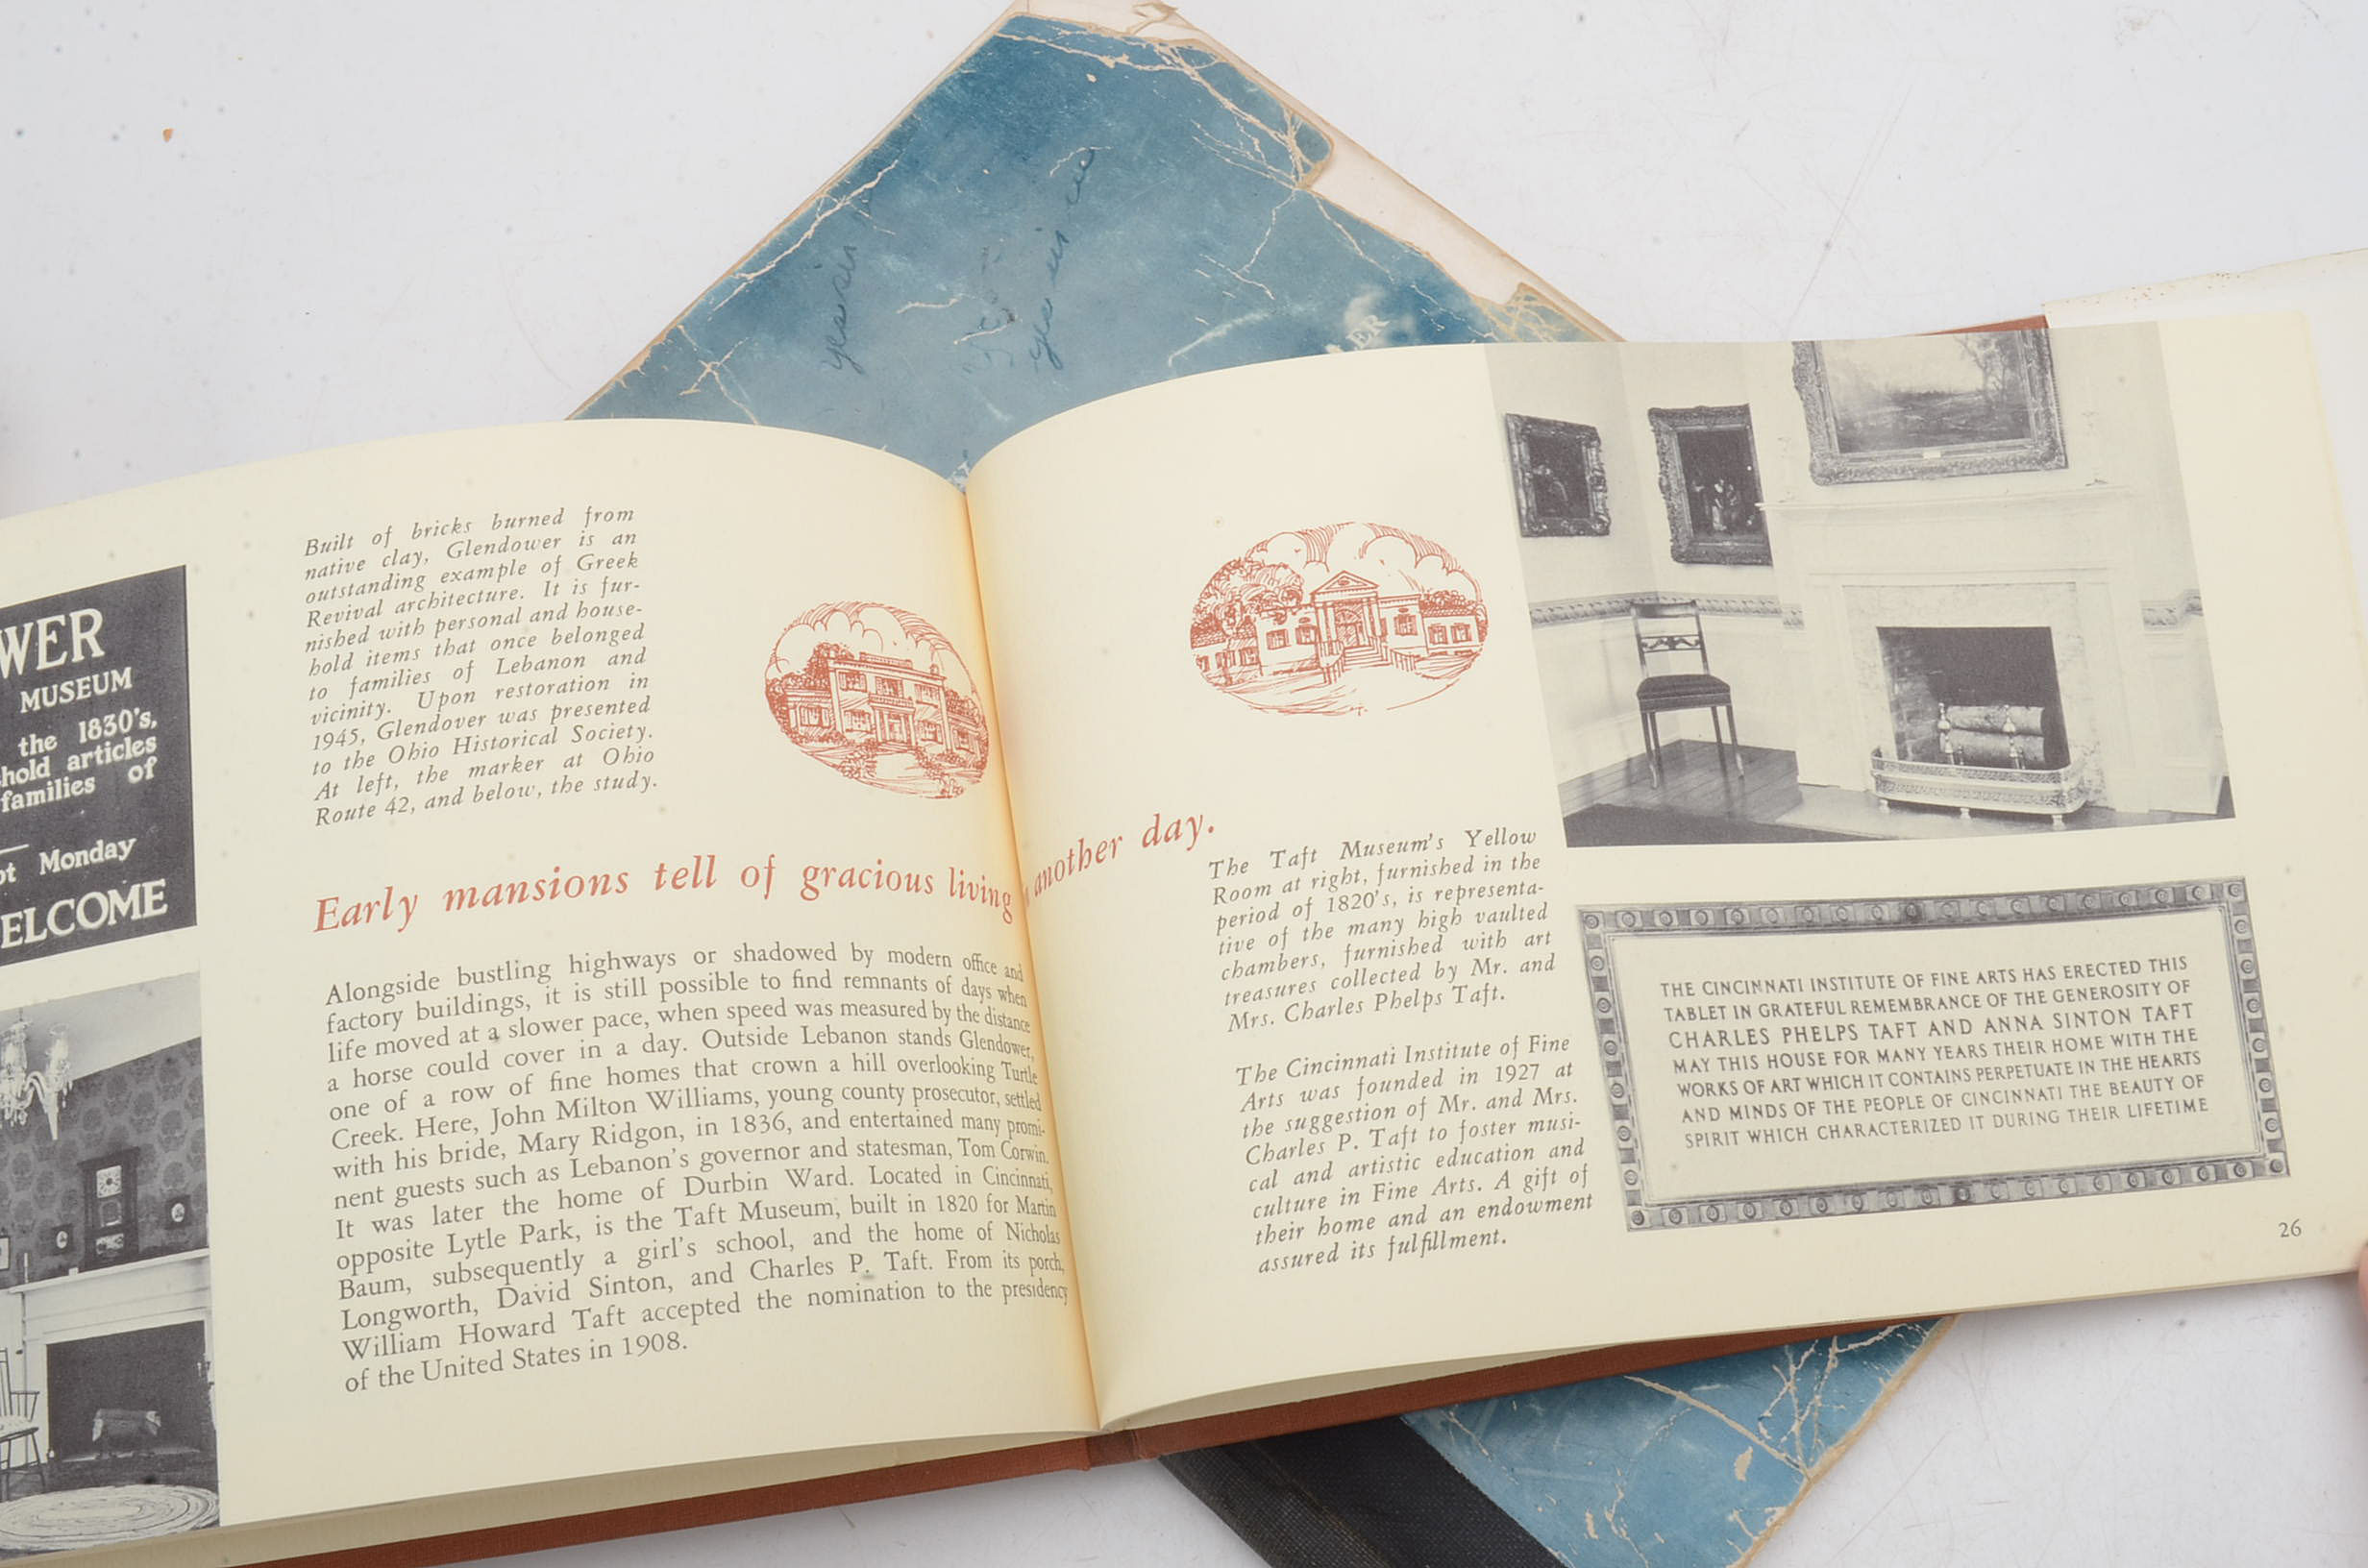 WER
MUSEUM
the 1830's,
hold articles
families of
Monday
ELCOME
Built of bricks burned from
native clay, Glendower is an
outstanding example of Greek
Revival architecture. It is fur-
nished with personal and house-
hold items that once belonged
to families of Lebanon and
vicinity. Upon restoration in
1945, Glendover was presented
to the Ohio Historical Society.
At left, the marker at Ohio
Route 42, and below, the study.
Early mansions tell of gracious living another day.
Alongside bustling highways or shadowed by modern office and
factory buildings, it is still possible to find remnants of days when
life moved at a slower pace, when speed was measured by the distance
a horse could cover in a day. Outside Lebanon stands Glendower,
one of a row of fine homes that crown a hill overlooking Turtle
Creek. Here, John Milton Williams, young county prosecutor, settled
with his bride, Mary Ridgon, in 1836, and entertained many promi-
nent guests such as Lebanon's governor and statesman, Tom Corwin.
It was later the home of Durbin Ward. Located in Cincinnati,
opposite Lytle Park, is the Taft Museum, built in 1820 for Martin
Baum, subsequently a girl's school, and the home of Nicholas
Longworth, David Sinton, and Charles P. Taft. From its porch,
William Howard Taft accepted the nomination to the presidency
of the United States in 1908.
The Taft Museum's Yellow
Room at right, furnished in the
period of 1820's, is representa-
tive of the many high vaulted
chambers, furnished with art
treasures collected by Mr. and
Mrs. Charles Phelps Taft.
The Cincinnati Institute of Fine
Arts was founded in 1927 at
the suggestion of Mr. and Mrs.
Charles P. Taft to foster musi-
cal and artistic education and
culture in Fine Arts. A gift of
their home and an endowment
assured its fulfillment.
THE CINCINNATI INSTITUTE OF FINE ARTS HAS ERECTED THIS
TABLET IN GRATEFUL REMEMBRANCE OF THE GENEROSITY OF
CHARLES PHELPS TAFT AND ANNA SINTON TAFT
MAY THIS HOUSE FOR MANY YEARS THEIR HOME WITH THE
WORKS OF ART WHICH IT CONTAINS PERPETUATE IN THE HEARTS
AND MINDS OF THE PEOPLE OF CINCINNATI THE BEAUTY OF
SPIRIT WHICH CHARACTERIZED IT DURING THEIR LIFETIME
26